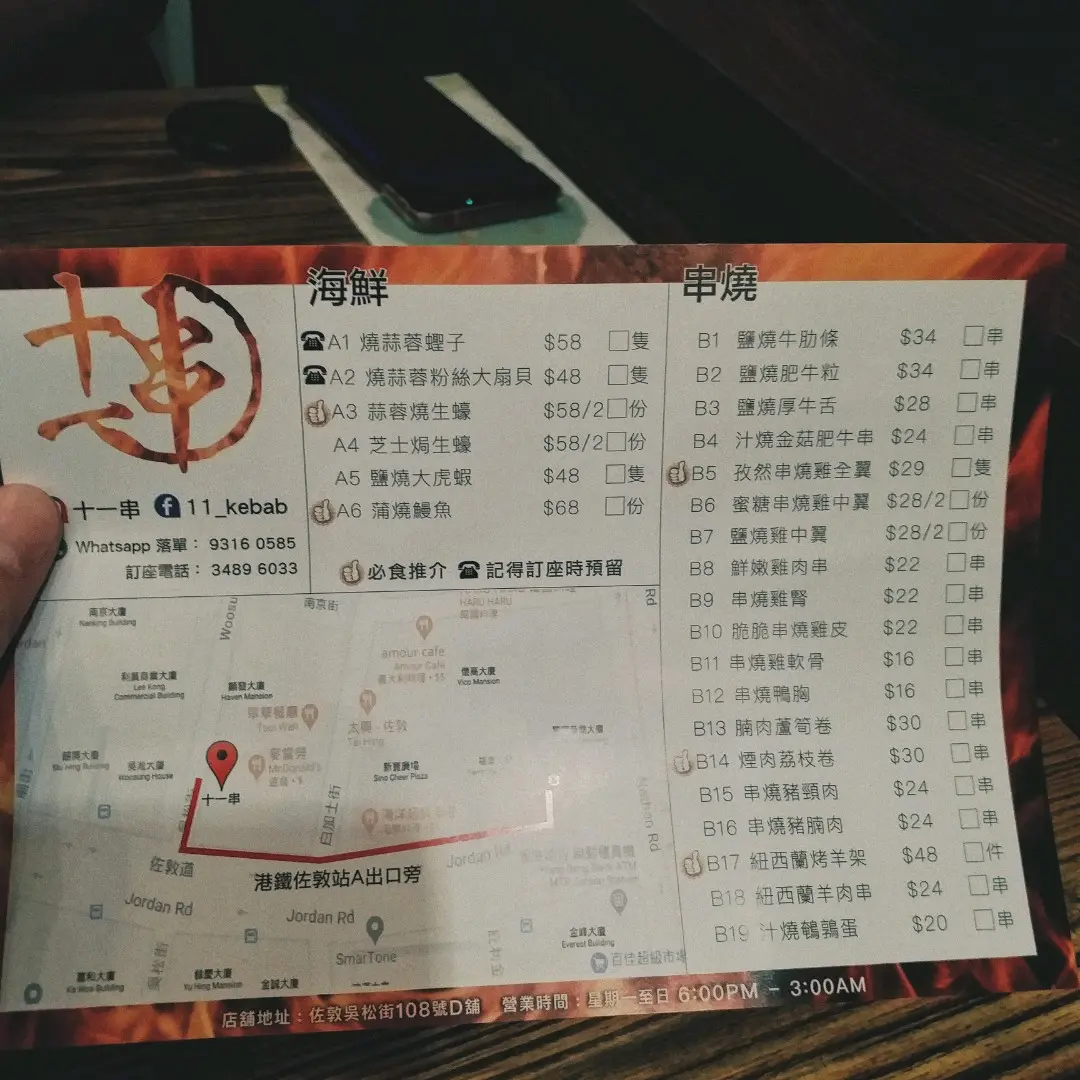 十一串
海鮮
☎A1 燒蒜蓉蟶子 $58 □隻
☎A2 燒蒜蓉粉絲大扇貝 $48 □隻
A3 蒜蓉燒生蠔 $58/2□份
A4 芝士焗生蠔 $58/2□份
A5 鹽燒大虎蝦 $48 □隻
A6 蒲燒鰻魚 $68 □份
必食推介 ☎記得訂座時預留
十一串 11_kebab
Whatsapp 落單： 9316 0585
訂座電話： 3489 6033
串燒
B1 鹽燒牛肋條 $34 □串
B2 鹽燒肥牛粒 $34 □串
B3 鹽燒厚牛舌 $28 □串
B4 汁燒金菇肥牛串 $24 □串
B5 孜然串燒雞全翼 $29 □隻
B6 蜜糖串燒雞中翼 $28/2□份
B7 鹽燒雞中翼 $28/2□份
B8 鮮嫩雞肉串 $22 □串
B9 串燒雞腎 $22 □串
B10 脆脆串燒雞皮 $22 □串
B11 串燒雞軟骨 $16 □串
B12 串燒鴨胸 $16 □串
B13 腩肉蘆筍卷 $30 □串
B14 煙肉荔枝卷 $30 □串
B15 串燒豬頸肉 $24 □串
B16 串燒豬腩肉 $24 □串
B17 紐西蘭烤羊架 $48 □件
B18 紐西蘭羊肉串 $24 □串
B19 汁燒鵪鶉蛋 $20 □串
南京大廈
Nanking Building
Woosu
南京街
HARU HARU
Rd
amour cafe
Amour Cafe
利員商業大廈
Lee Kong
Commercial Building
願發大廈
Haven Mansion
僑高大廈
Vico Mansion
太興 - 佐敦
Tai Hing
翠華餐廳
Tsui Wah
麥當勞
McDonald's
吳淞大廈
Woosung House
新寶廣場
Sino Cheer Plaza
十一串
白加士街
佐敦道
港鐵佐敦站A出口旁
Jordan Rd
Jordan Rd
Jordan Rd
Nathan Rd
SmarTone
金峰大廈
Everest Building
百佳超級市場
嘉和大廈
Ka Woo Building
吳松街
餘慶大廈
Yu Hing Mansion
金誠大廈
店舖地址：佐敦吳松街108號D舖 營業時間：星期一至日 6:00PM - 3:00AM